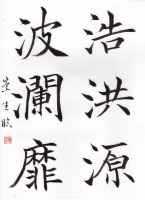 浩洪源
波瀾靡